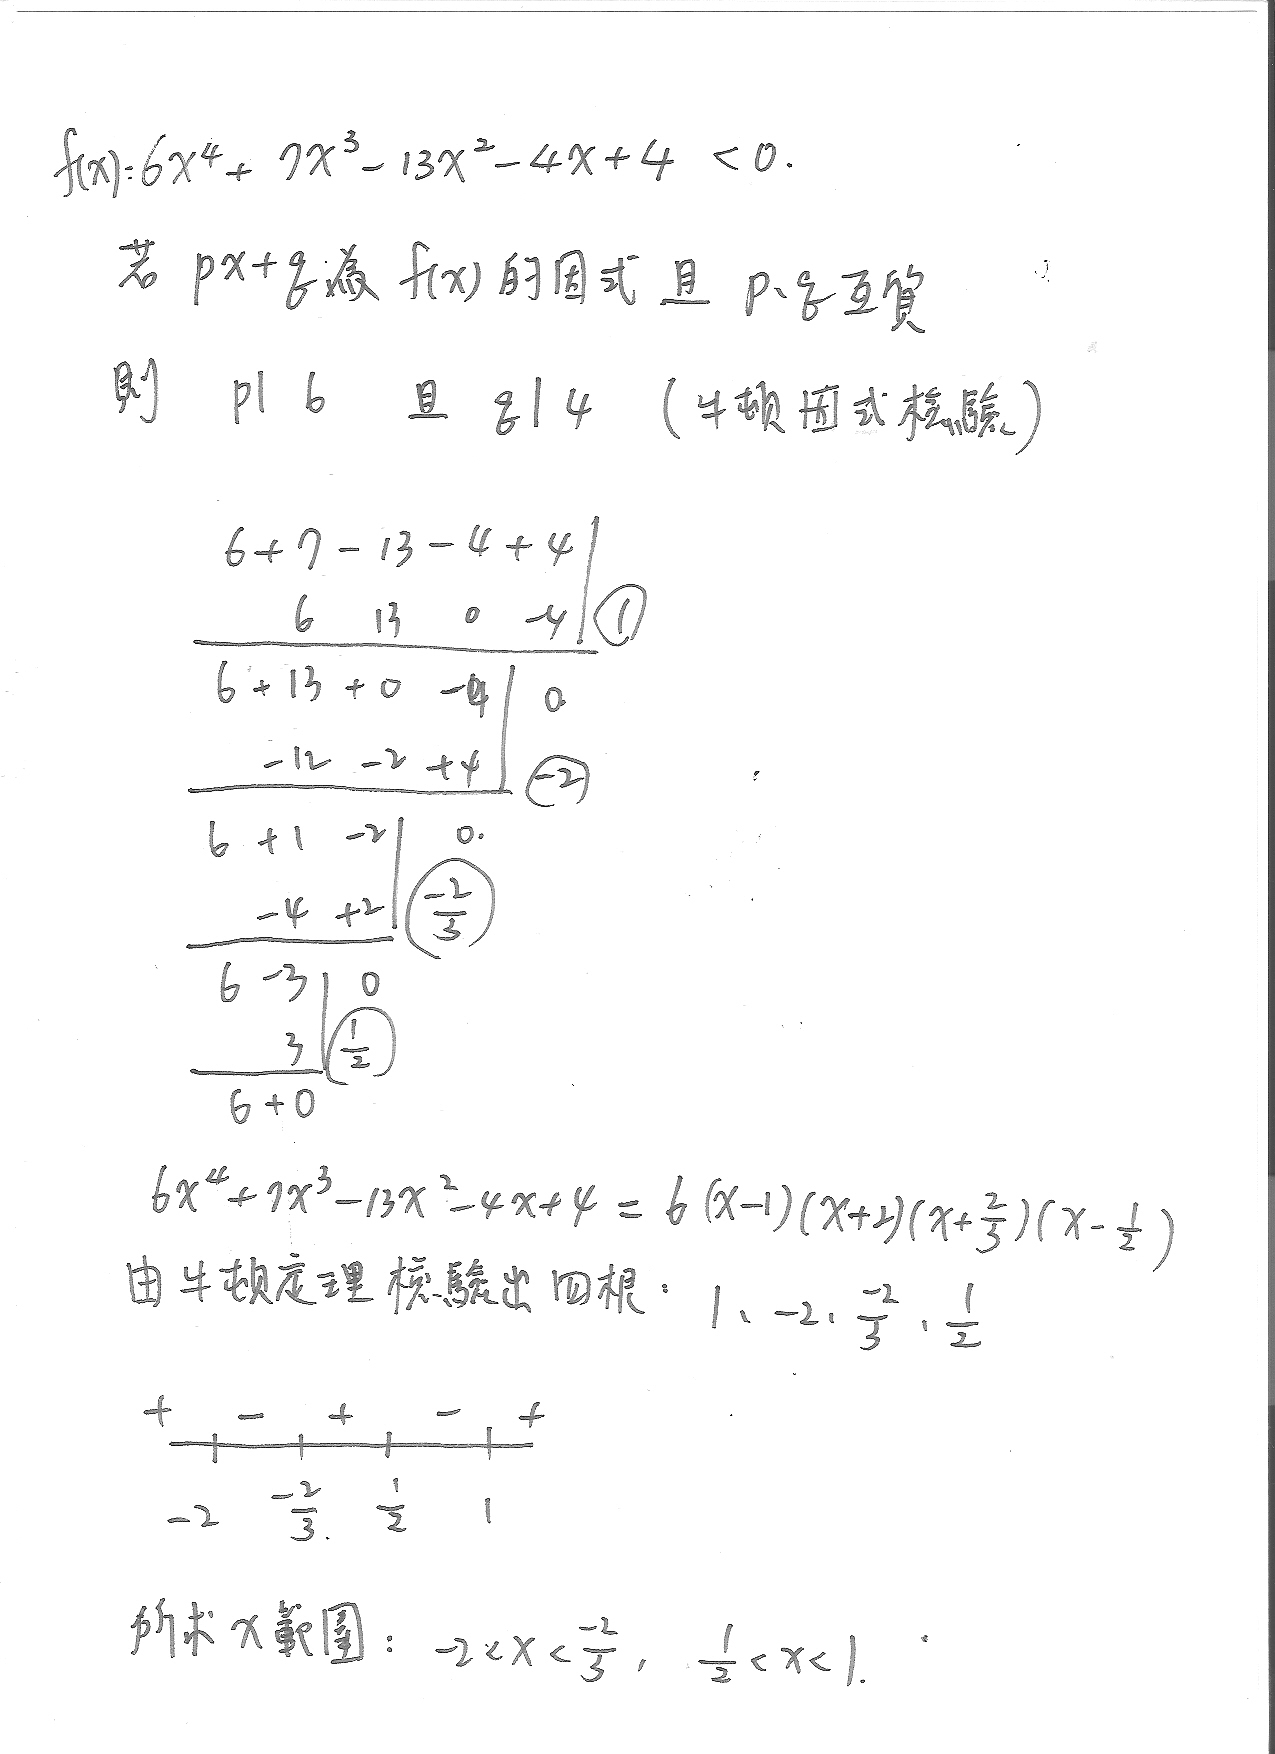 f(x): 6x⁴ + 7x³ - 13x² - 4x + 4 < 0.
若 px+q 為 f(x) 的因式 且 p、q 互質
則 p|6 且 q|4 (牛頓因式檢驗)
6 + 7 - 13 - 4 + 4
6 13 0 -4 1
6 + 13 + 0 -4 0
-12 -2 +4 -2
6 +1 -2 0.
-4 +2 -2/3
6 -3 0
3 1/2
6 + 0
6x⁴ + 7x³ - 13x² - 4x + 4 = 6(x-1)(x+2)(x+2/3)(x-1/2)
由牛頓定理檢驗出四根: 1、-2、-2/3、1/2
+ - + - +
-2 -2/3. 1/2 1
所求 x 範圍: -2<x<-2/3, 1/2<x<1.